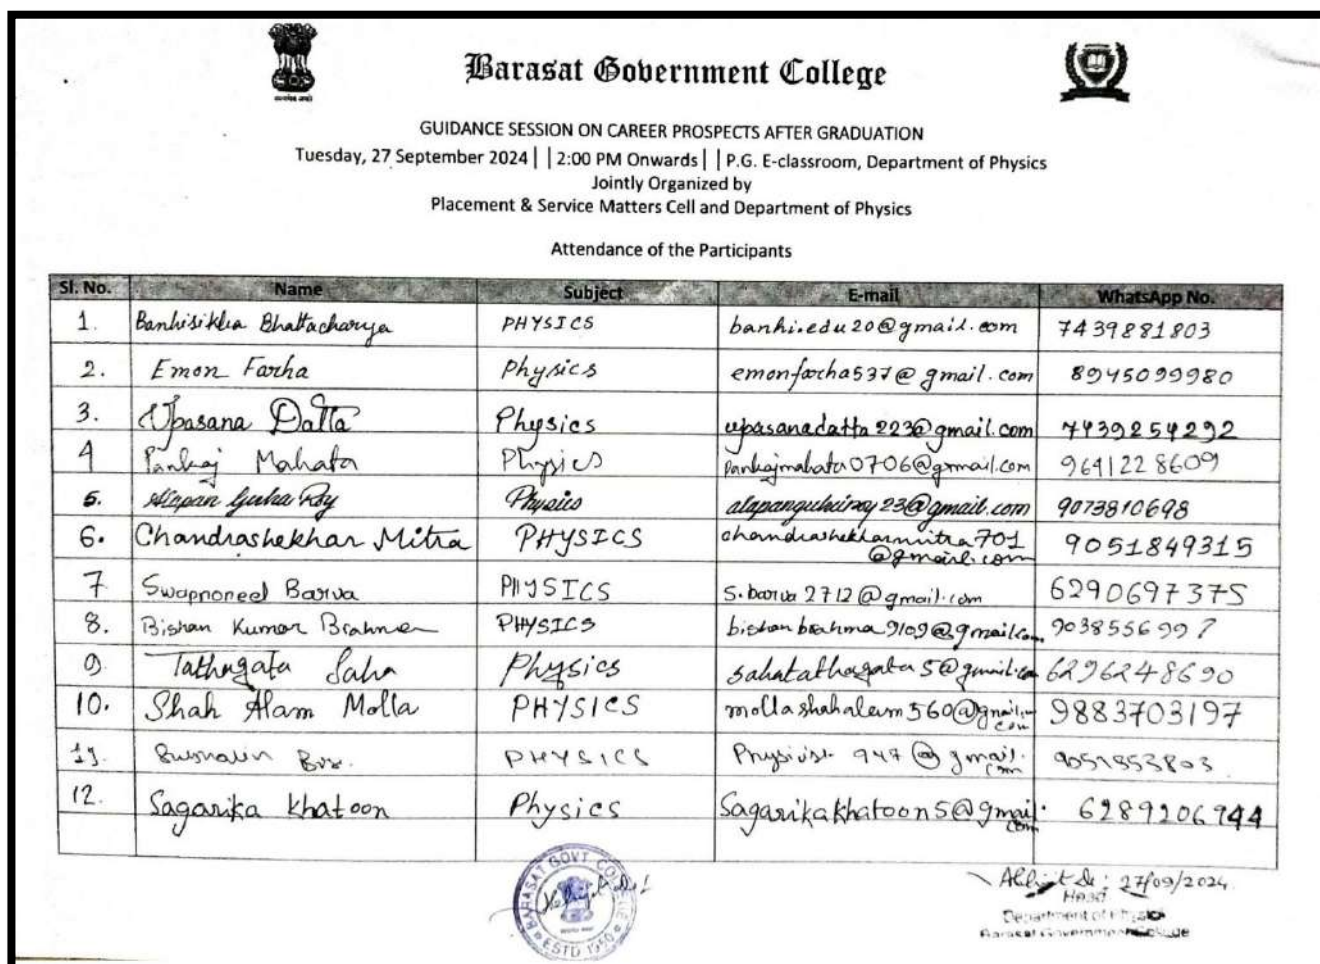 Barasat Government College
GUIDANCE SESSION ON CAREER PROSPECTS AFTER GRADUATION
Tuesday, 27 September 2024 | | 2:00 PM Onwards | | P.G. E-classroom, Department of Physics
Jointly Organized by
Placement & Service Matters Cell and Department of Physics
Attendance of the Participants
Sl. No. Name Subject E-mail WhatsApp No.
1. Banhisikha Bhattacharya PHYSICS banhi.edu20@gmail.com 7439881803
2. Emon Farha Physics emonfarha537@gmail.com 8945099980
3. Upasana Datta Physics upasanadatta223@gmail.com 7439254292
4 Pankaj Mahata Physics pankajmahata0706@gmail.com 9641228609
5. Alapan Guha Roy Physics alapanguharoy23@gmail.com 9073810698
6. Chandrashekhar Mitra PHYSICS chandrashekharmitra701
@gmail.com 9051849315
7 Swapnoneel Barua PHYSICS s.barua2712@gmail.com 6290697375
8. Bishan Kumar Brahma PHYSICS bishanbrahma9109@gmail.com 9038556997
9 Tathagata Saha Physics sahatathagata5@gmail.com 6296248690
10. Shah Alam Molla PHYSICS mollashahalam560@gmail.
com 9883703197
11. PHYSICS 947@gmail.
com 9051853803
12. Sagarika Khatoon Physics Sagarikakhatoon5@gmail.
com 6289206944
BARASAT GOVT. COLLEGE
ESTD 1950
Abhijit De 27/09/2024
Head
Department of Physics
Barasat Government College